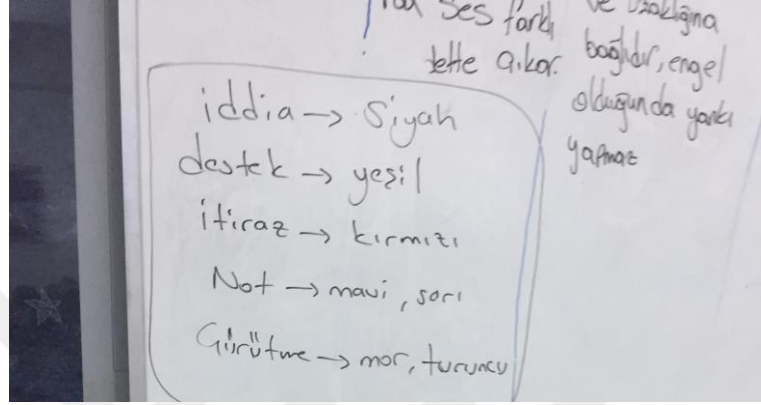 ses farklı
ve uzaklığına
tette çıkar.
bağlıdır, engel
olduğunda yankı
yapmaz
iddia → Siyah
destek → yeşil
itiraz → kırmızı
Not → mavi, sarı
Çürütme → mor, turuncu